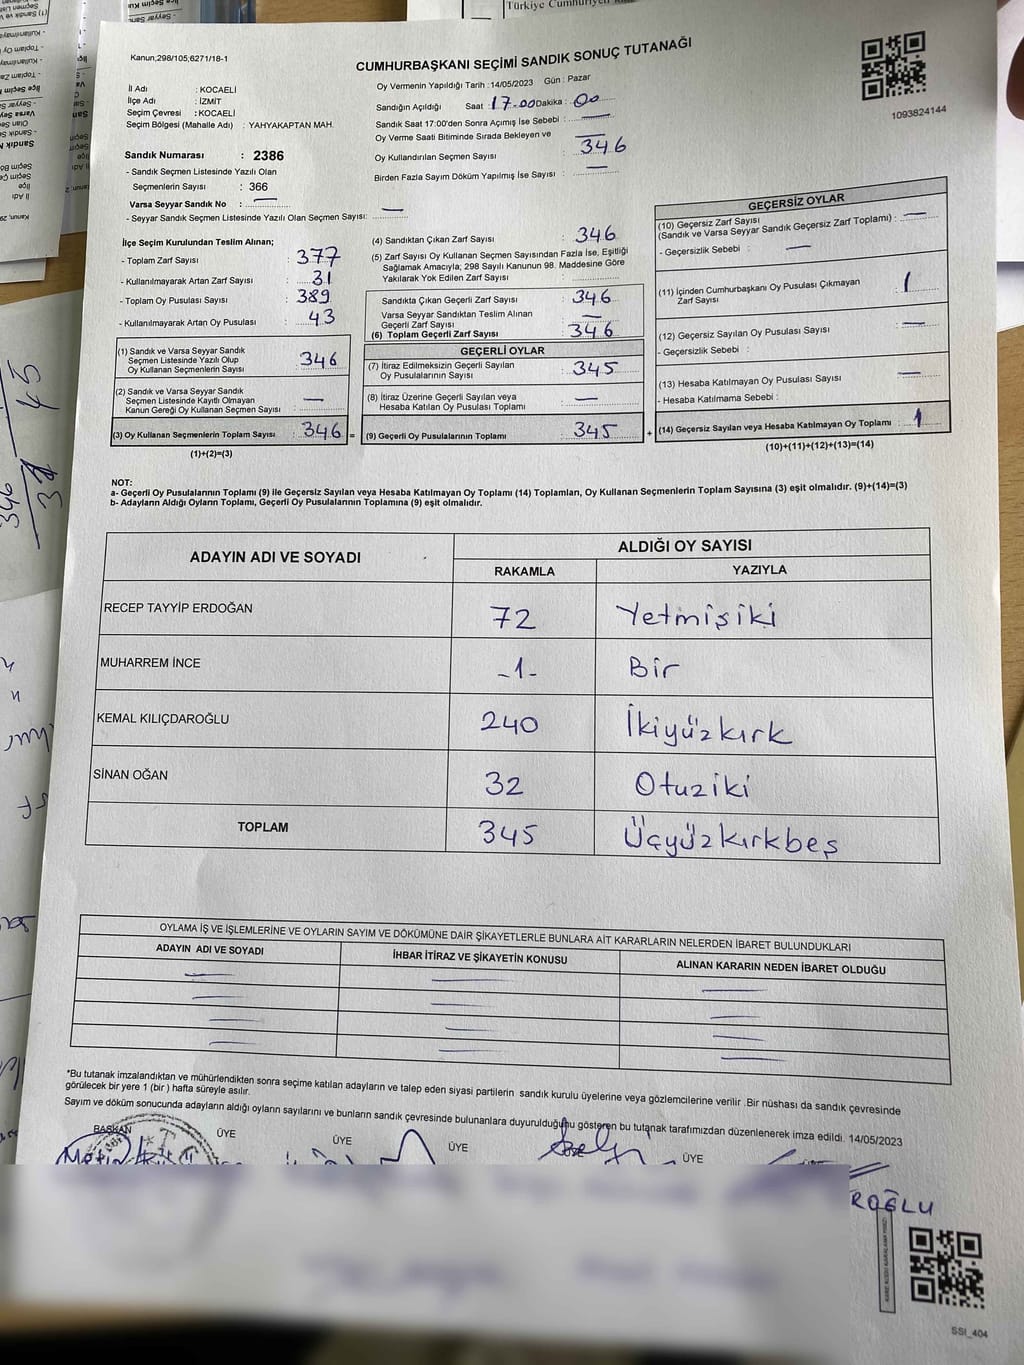 Türkiye Cumhuriyeti
Kanun,298/105,6271/18-1
CUMHURBAŞKANI SEÇİMİ SANDIK SONUÇ TUTANAĞI
1093824144
İl Adı : KOCAELİ
İlçe Adı : İZMİT
Seçim Çevresi : KOCAELİ
Seçim Bölgesi (Mahalle Adı) : YAHYAKAPTAN MAH.
Oy Vermenin Yapıldığı Tarih :14/05/2023 Gün : Pazar
Sandığın Açıldığı Saat :17.00 Dakika : 00
Sandık Saat 17:00'den Sonra Açımış İse Sebebi : —
Oy Verme Saati Bitiminde Sırada Bekleyen ve —
Oy Kullandırılan Seçmen Sayısı : 346
Birden Fazla Sayım Döküm Yapılmış İse Sayısı : —
Sandık Numarası : 2386
- Sandık Seçmen Listesinde Yazılı Olan
Seçmenlerin Sayısı : 366
Varsa Seyyar Sandık No : —
- Seyyar Sandık Seçmen Listesinde Yazılı Olan Seçmen Sayısı: —
İlçe Seçim Kurulundan Teslim Alınan;
- Toplam Zarf Sayısı : 377
- Kullanılmayarak Artan Zarf Sayısı : 31
- Toplam Oy Pusulası Sayısı : 389
- Kullanılmayarak Artan Oy Pusulası : 43
(1) Sandık ve Varsa Seyyar Sandık
Seçmen Listesinde Yazılı Olup
Oy Kullanan Seçmenlerin Sayısı : 346
(2) Sandık ve Varsa Seyyar Sandık
Seçmen Listesinde Kayıtlı Olmayan
Kanun Gereği Oy Kullanan Seçmen Sayısı : —
(3) Oy Kullanan Seçmenlerin Toplam Sayısı : 346 =
(1)+(2)=(3)
(4) Sandıktan Çıkan Zarf Sayısı : 346
(5) Zarf Sayısı Oy Kullanan Seçmen Sayısından Fazla İse, Eşitliği
Sağlamak Amacıyla; 298 Sayılı Kanunun 98. Maddesine Göre
Yakılarak Yok Edilen Zarf Sayısı :
Sandıkta Çıkan Geçerli Zarf Sayısı : 346
Varsa Seyyar Sandıktan Teslim Alınan
Geçerli Zarf Sayısı : —
(6) Toplam Geçerli Zarf Sayısı : 346
GEÇERLİ OYLAR
(7) İtiraz Edilmeksizin Geçerli Sayılan
Oy Pusulalarının Sayısı : 345
(8) İtiraz Üzerine Geçerli Sayılan veya
Hesaba Katılan Oy Pusulası Toplamı : —
(9) Geçerli Oy Pusulalarının Toplamı : 345 +
GEÇERSİZ OYLAR
(10) Geçersiz Zarf Sayısı
(Sandık ve Varsa Seyyar Sandık Geçersiz Zarf Toplamı) : —
- Geçersizlik Sebebi : —
(11) İçinden Cumhurbaşkanı Oy Pusulası Çıkmayan
Zarf Sayısı : 1
(12) Geçersiz Sayılan Oy Pusulası Sayısı : —
- Geçersizlik Sebebi :
(13) Hesaba Katılmayan Oy Pusulası Sayısı : —
- Hesaba Katılmama Sebebi :
(14) Geçersiz Sayılan veya Hesaba Katılmayan Oy Toplamı : 1
(10)+(11)+(12)+(13)=(14)
NOT:
a- Geçerli Oy Pusulalarının Toplamı (9) ile Geçersiz Sayılan veya Hesaba Katılmayan Oy Toplamı (14) Toplamları, Oy Kullanan Seçmenlerin Toplam Sayısına (3) eşit olmalıdır. (9)+(14)=(3)
b- Adayların Aldığı Oyların Toplamı, Geçerli Oy Pusulalarının Toplamına (9) eşit olmalıdır.
ADAYIN ADI VE SOYADI ALDIĞI OY SAYISI
RAKAMLA YAZIYLA
RECEP TAYYİP ERDOĞAN 72 Yetmişiki
MUHARREM İNCE -1- Bir
KEMAL KILIÇDAROĞLU 240 İkiyüzkırk
SİNAN OĞAN 32 Otuziki
TOPLAM 345 Üçyüzkırkbeş
OYLAMA İŞ VE İŞLEMLERİNE VE OYLARIN SAYIM VE DÖKÜMÜNE DAİR ŞİKAYETLERLE BUNLARA AİT KARARLARIN NELERDEN İBARET BULUNDUKLARI
ADAYIN ADI VE SOYADI İHBAR İTİRAZ VE ŞİKAYETİN KONUSU ALINAN KARARIN NEDEN İBARET OLDUĞU
*Bu tutanak imzalandıktan ve mühürlendikten sonra seçime katılan adayların ve talep eden siyasi partilerin sandık kurulu üyelerine veya gözlemcilerine verilir .Bir nüshası da sandık çevresinde
görülecek bir yere 1 (bir ) hafta süreyle asılır.
Sayım ve döküm sonucunda adayların aldığı oyların sayılarını ve bunların sandık çevresinde bulunanlara duyurulduğunu gösteren bu tutanak tarafımızdan düzenlenerek imza edildi. 14/05/2023
BAŞKAN ÜYE ÜYE ÜYE ÜYE
ROĞLU
SSI_404